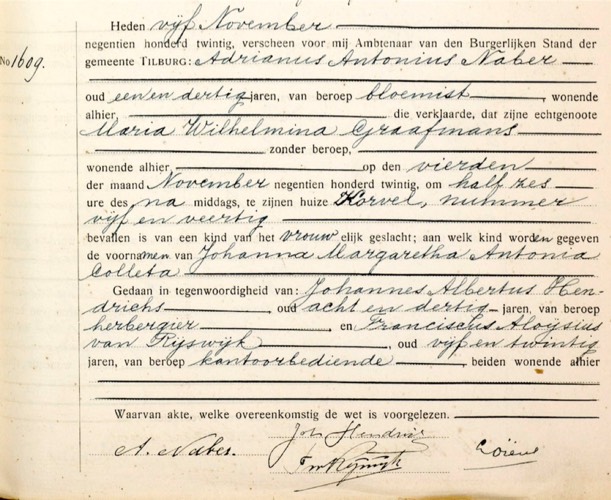 Heden vijf November
No 1609.
negentien honderd twintig, verscheen voor mij Ambtenaar van den Burgerlijken Stand der
gemeente TILBURG: Adrianus Antonius Naber
oud een en dertig jaren, van beroep bloemist, wonende
alhier, die verklaarde, dat zijne echtgenoote
Maria Wilhelmina Graafmans
zonder beroep,
wonende alhier, op den vierden
der maand November negentien honderd twintig, om half zes
ure des na middags, te zijnen huize Korvel, nummer
vijf en veertig
bevallen is van een kind van het vrouwelijk geslacht; aan welk kind worden gegeven
de voornamen van Johanna Margaretha Antonia
Colleta
Gedaan in tegenwoordigheid van: Johannes Albertus Hen-
drichs, oud acht en dertig jaren, van beroep
herbergier, en Franciscus Aloÿsius
van Rijswijk, oud vijf en twintig
jaren, van beroep kantoorbediende, beiden wonende alhier
Waarvan akte, welke overeenkomstig de wet is voorgelezen.
A. Naber.